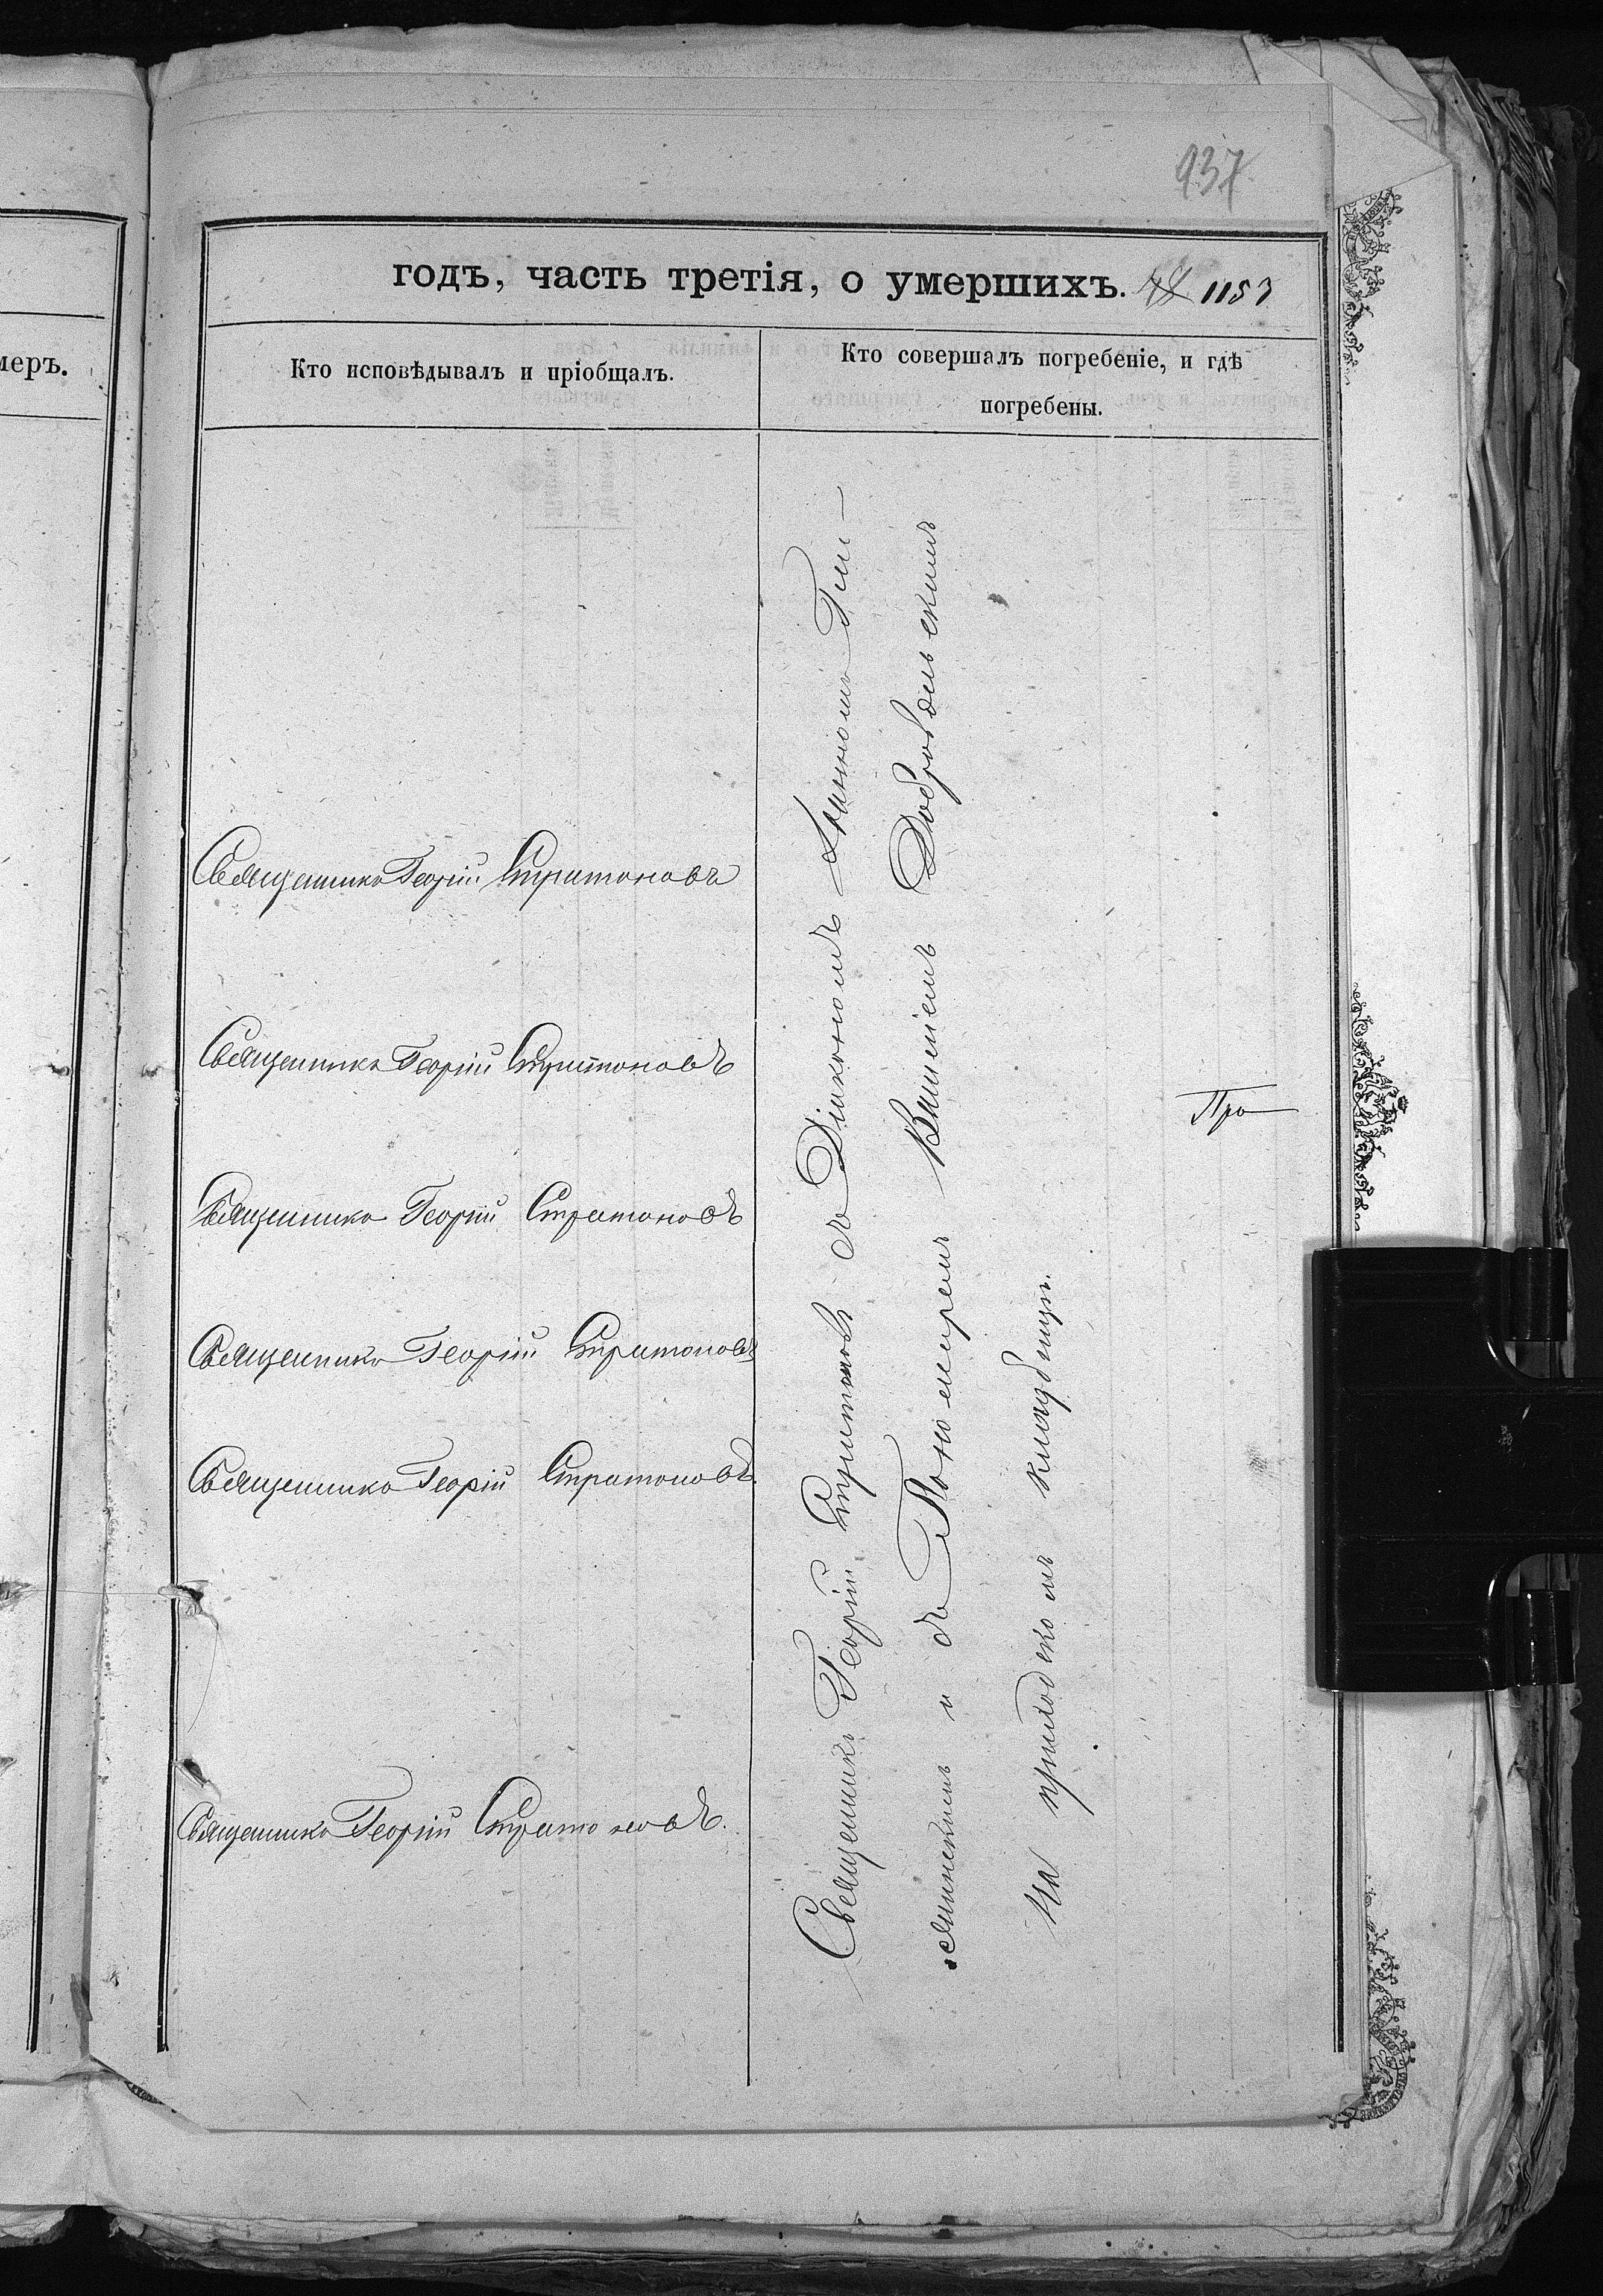 937
годъ, часть третія, о умершихъ. 1153
меръ.
Кто исповѣдывалъ и пріобщалъ.
Кто совершалъ погребеніе, и гдѣ
погребены.
Священникъ Георгій Стратоновъ
Священникъ Георгій Стратоновъ
Священникъ Георгій Стратоновъ
Священникъ Георгій Стратоновъ
Священникъ Георгій Стратоновъ.
Священникъ Георгій Стратоновъ.
Священникъ Георгій Стратоновъ съ Діакономъ
и съ Пономаремъ Добровольскимъ
На приходскомъ кладбищѣ.
Про